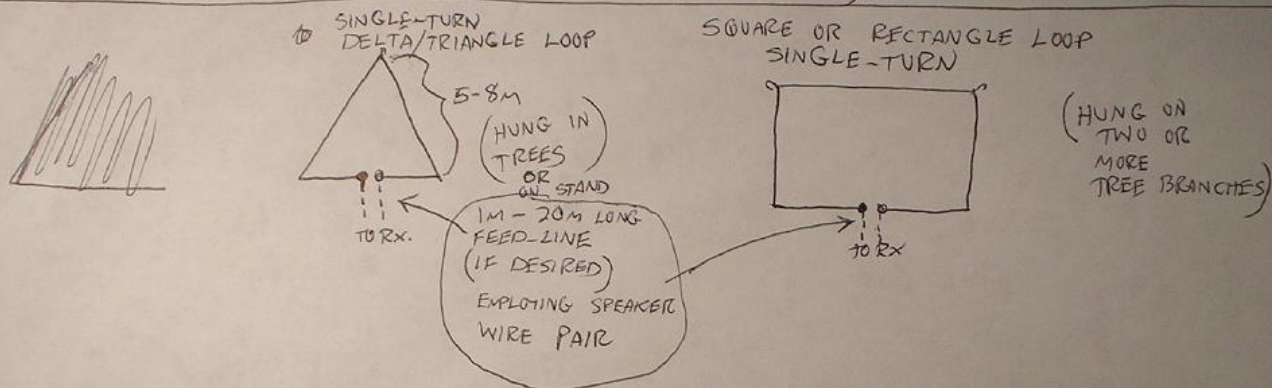 SINGLE-TURN
DELTA/TRIANGLE LOOP
5-8M
(HUNG IN
TREES
OR
ON STAND)
TO RX.
1M - 20M LONG
FEED-LINE
(IF DESIRED)
EMPLOYING SPEAKER
WIRE PAIR
SQUARE OR RECTANGLE LOOP
SINGLE-TURN
TO RX
(HUNG ON
TWO OR
MORE
TREE BRANCHES)